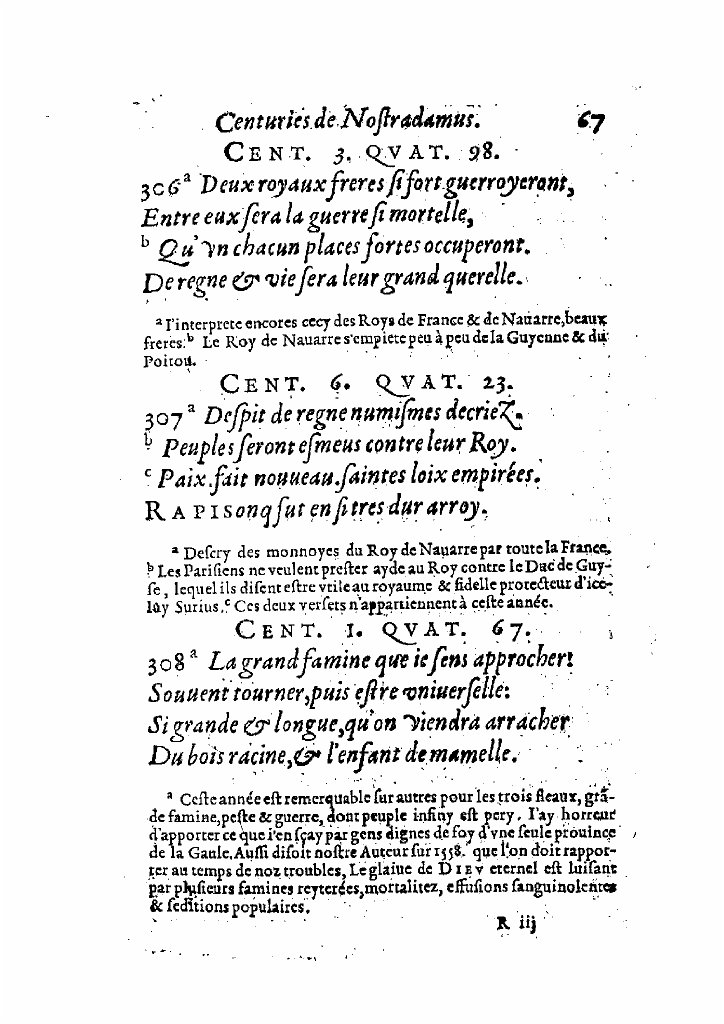 Centuries de Noſtradamus. 67
CENT. 3. QVAT. 98.
306ᵃ Deux royaux freres ſi fort guerroyeront,
Entre eux ſera la guerre ſi mortelle,
ᵇ Qu'vn chacun places fortes occuperont.
De regne & vie ſera leur grand querelle.
ᵃ I'interprete encores cecy des Roys de France & de Nauarre, beaux
freres.ᵇ Le Roy de Nauarre s'empiete peu à peu de la Guyenne & du
Poitou.
CENT. 6. QVAT. 23.
307ᵃ Deſpit de regne numiſmes decriez,
ᵇ Peuples ſeront eſmeus contre leur Roy.
ᶜ Paix fait nouueau ſaintes loix empirées.
RAPIS onq fut en ſi tres dur arroy.
ᵃ Deſcry des monnoyes du Roy de Nauarre par toute la France.
ᵇ Les Pariſiens ne veulent preſter ayde au Roy contre le Duc de Guy-
ſe, lequel ils diſent eſtre vtile au royaume & fidelle protecteur d'ice-
luy Surius.ᶜ Ces deux verſets n'appartiennent à ceſte année.
CENT. 1. QVAT. 67.
308ᵃ La grand famine que ie ſens approcher:
Souuent tourner, puis eſtre vniuerſelle:
Si grande & longue, qu'on viendra arracher
Du bois racine, & l'enfant de mamelle.
ᵃ Ceſte année eſt remerquable ſur autres pour les trois fleaux, grã-
de famine, peſte & guerre, dont peuple infiny eſt pery. I'ay horreur
d'apporter ce que i'en ſçay par gens dignes de foy d'vne ſeule prouince
de la Gaule. Auſſi diſoit noſtre Auteur ſur 1558. que l'on doit rappor-
ter au temps de noz troubles, Le glaiue de DIEV eternel eſt luiſant
par pluſieurs famines reyterées, mortalitez, effuſions ſanguinolentes
& ſeditions populaires.
R iij